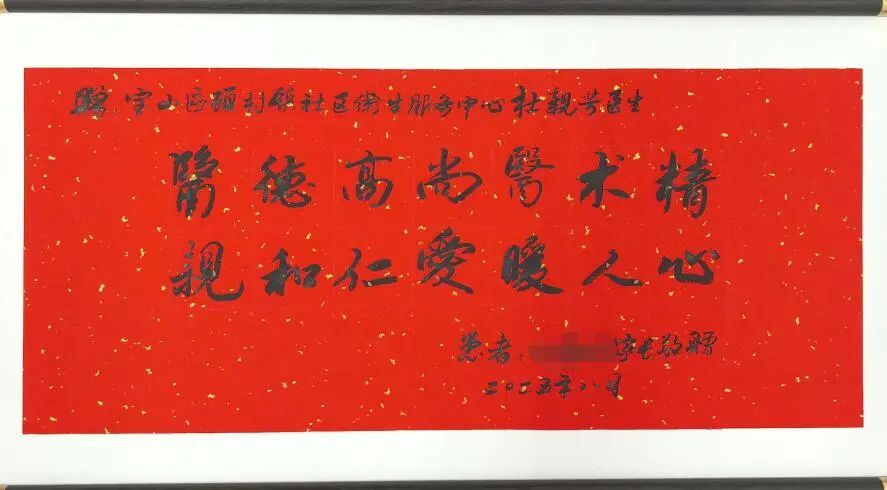 赠 宝山区顾村镇社区卫生服务中心杜靓芳医生
醫德高尚醫术精
親和仁愛暖人心
患者: 家长敬赠
二〇二五年八月